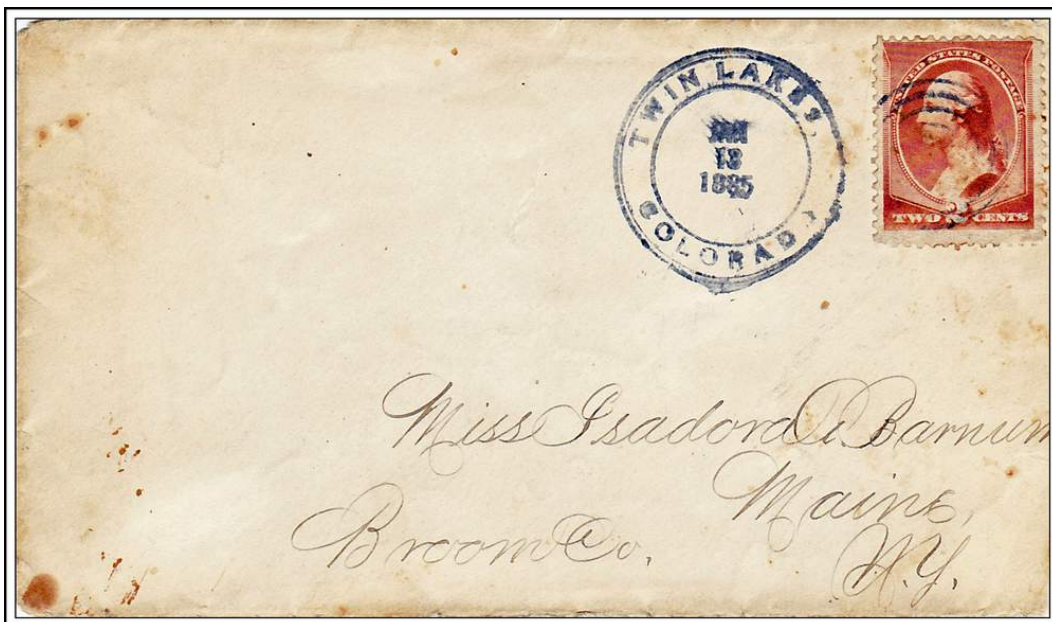 TWIN LAKES,
COLORADO
13
1885
UNITED STATES POSTAGE
TWO 2 CENTS
Miss Isadora A. Barnum
Maine,
Broom Co.
N.Y.